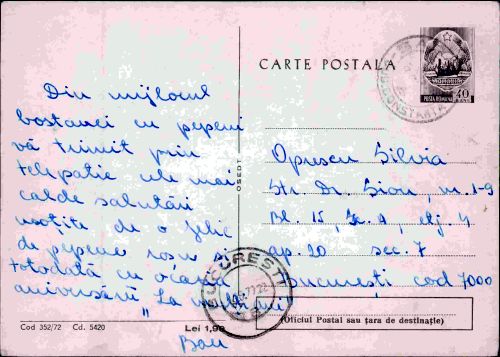 CARTE POSTALA
POSTA ROMANA
40
CONSTANTA
Din mijlocul
bostanei cu pepeni
vă trimit prin
telepatie cele mai
calde salutări
însoțite de o felie
de pepene roșu și
totodată cu ocazia
aniversării „La mulți ani
Oprescu Silvia
Str. Dr. Sion, nr. 1-9
Bl. 15, Sc. A, etj. 4
ap. 20 sec. 7
București cod 7000
BUCURESTI
Cod 352/72 Cd. 5420
Lei 1,90
(Oficiul Postal sau țara de destinație)